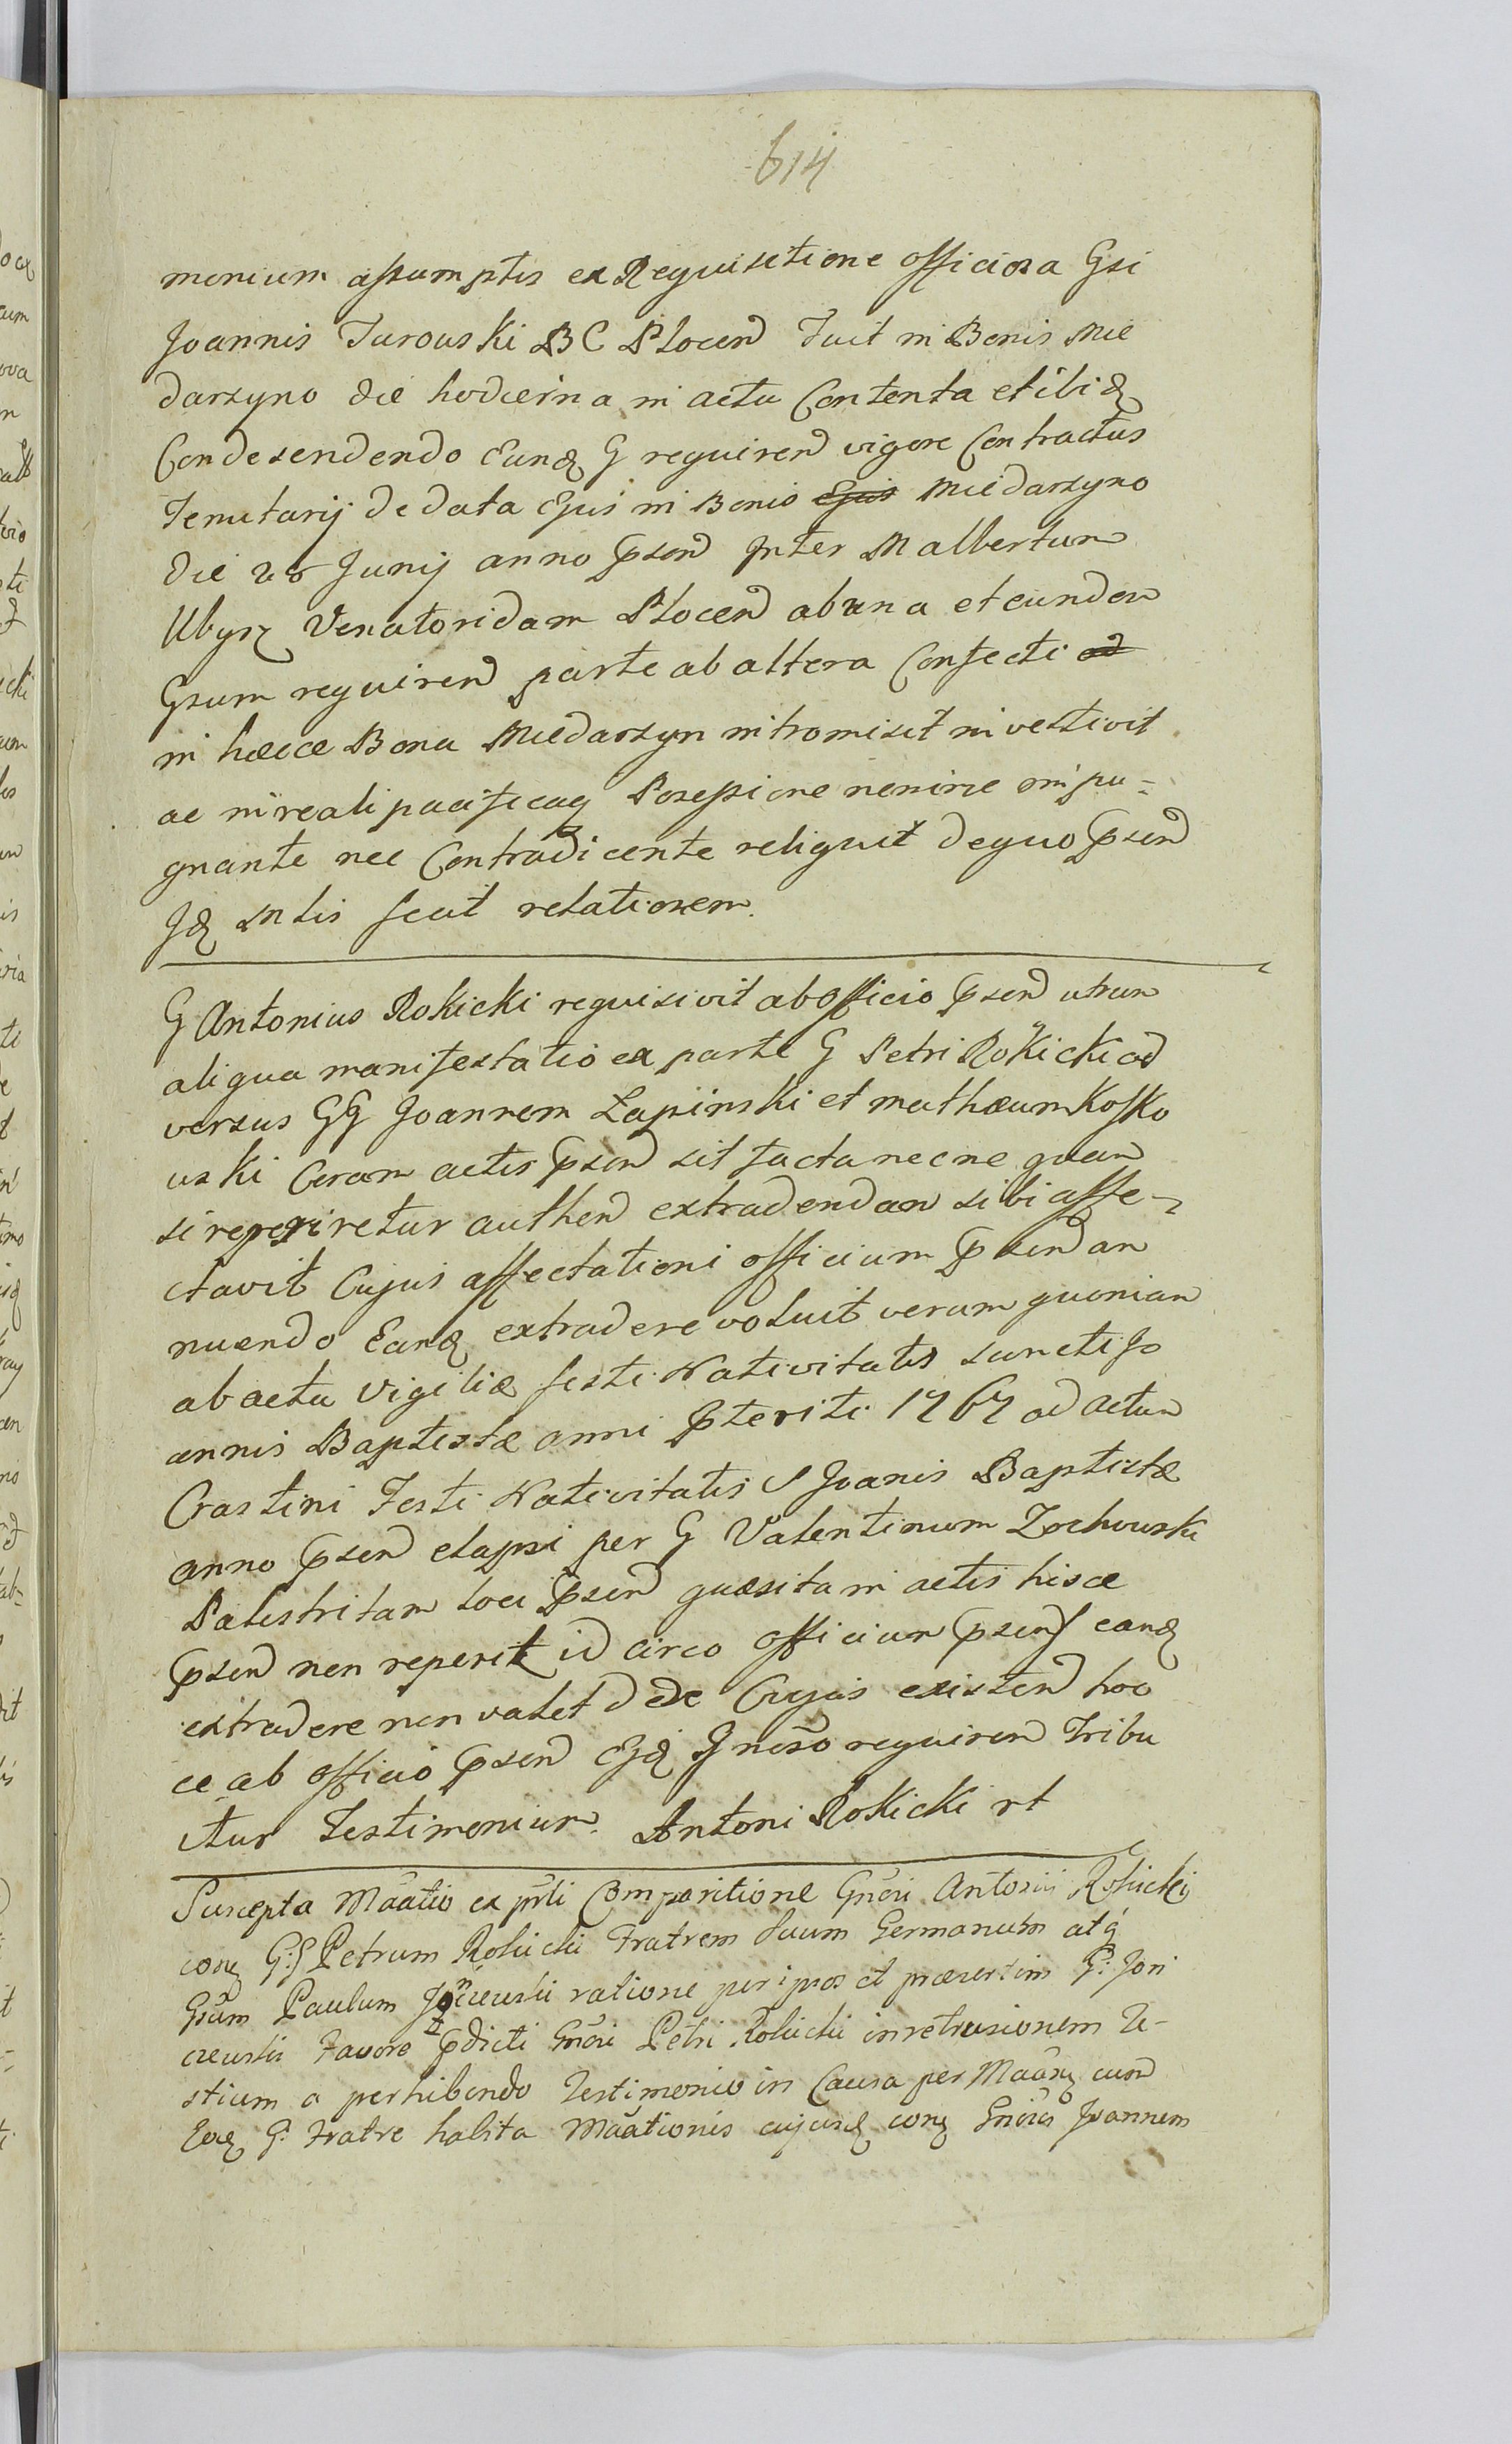 614
monium assumptis ex Requisitione officiosa Gsi
Joannis Turouski BC Plocen fuit in Bonis Mie
darzyno die hodierna in actu Contenta et ibiq
Condesendendo Eunq G requiren vigore Contractus
Tenutarij de data Ejus in Bonis Miedarzyno
die 28 Junij anno psen Inter M albertum
Ubysz Venatoridam Plocen ab una et eundem
Gsum requiren parte ab altera Confecti
in hæcce Bona Miedarzyn intromisit investivit
ac in reali pacificaq Posessione nemine impu=
gnante nec Contradicente reliquit de quo psen
Jq Mlis fecit relationem.
G Antonius Rokicki requisivit ab officio psen utrum
aliqua manifestatio ex parte G Petri Rokicki ad
versus GG Joannem Łapinski et mathæum Kossko
uski Coram actis psen sit facta necne quam
si reperiretur authen extradendam sibi affe-
ctavit Cujus affectationi officium psen an
nuendo Eanq extradere voluit verum quoniam
ab actu vigiliæ festi Nativitatis sancti Jo
annis Baptistæ anni pteriti 1767 ad actum
Crastini Festi Nativitatis S Joanis Baptistæ
anno psen elapsi per G Valentinum Zochowski
Palestritam loci psen quæsitam in actis hisce
psen non reperit id circo officium psens eanq
extradere non valet de Cujus existen hoc
ce ab officio psen Ejq Gneroso requiren Tribu
itur Testimonium. Antoni Rokicki rt
Suscepta Maatio ex prli Comparitione Gnosi Antonii Rokicki
conq G:G Petrum Rokicki Fratrem suum Germanum atq
Gsum Paulum ratione per ipsos et præsertim G: Jon
czewski Favore pdicti Gnosi Petri Rokicki in retrusionem Te-
stium a perhibendo Testimonio in Causa per Maanq cum
Eoq G: Fratre habita Maationis cujusq conq Gnosos Joannem